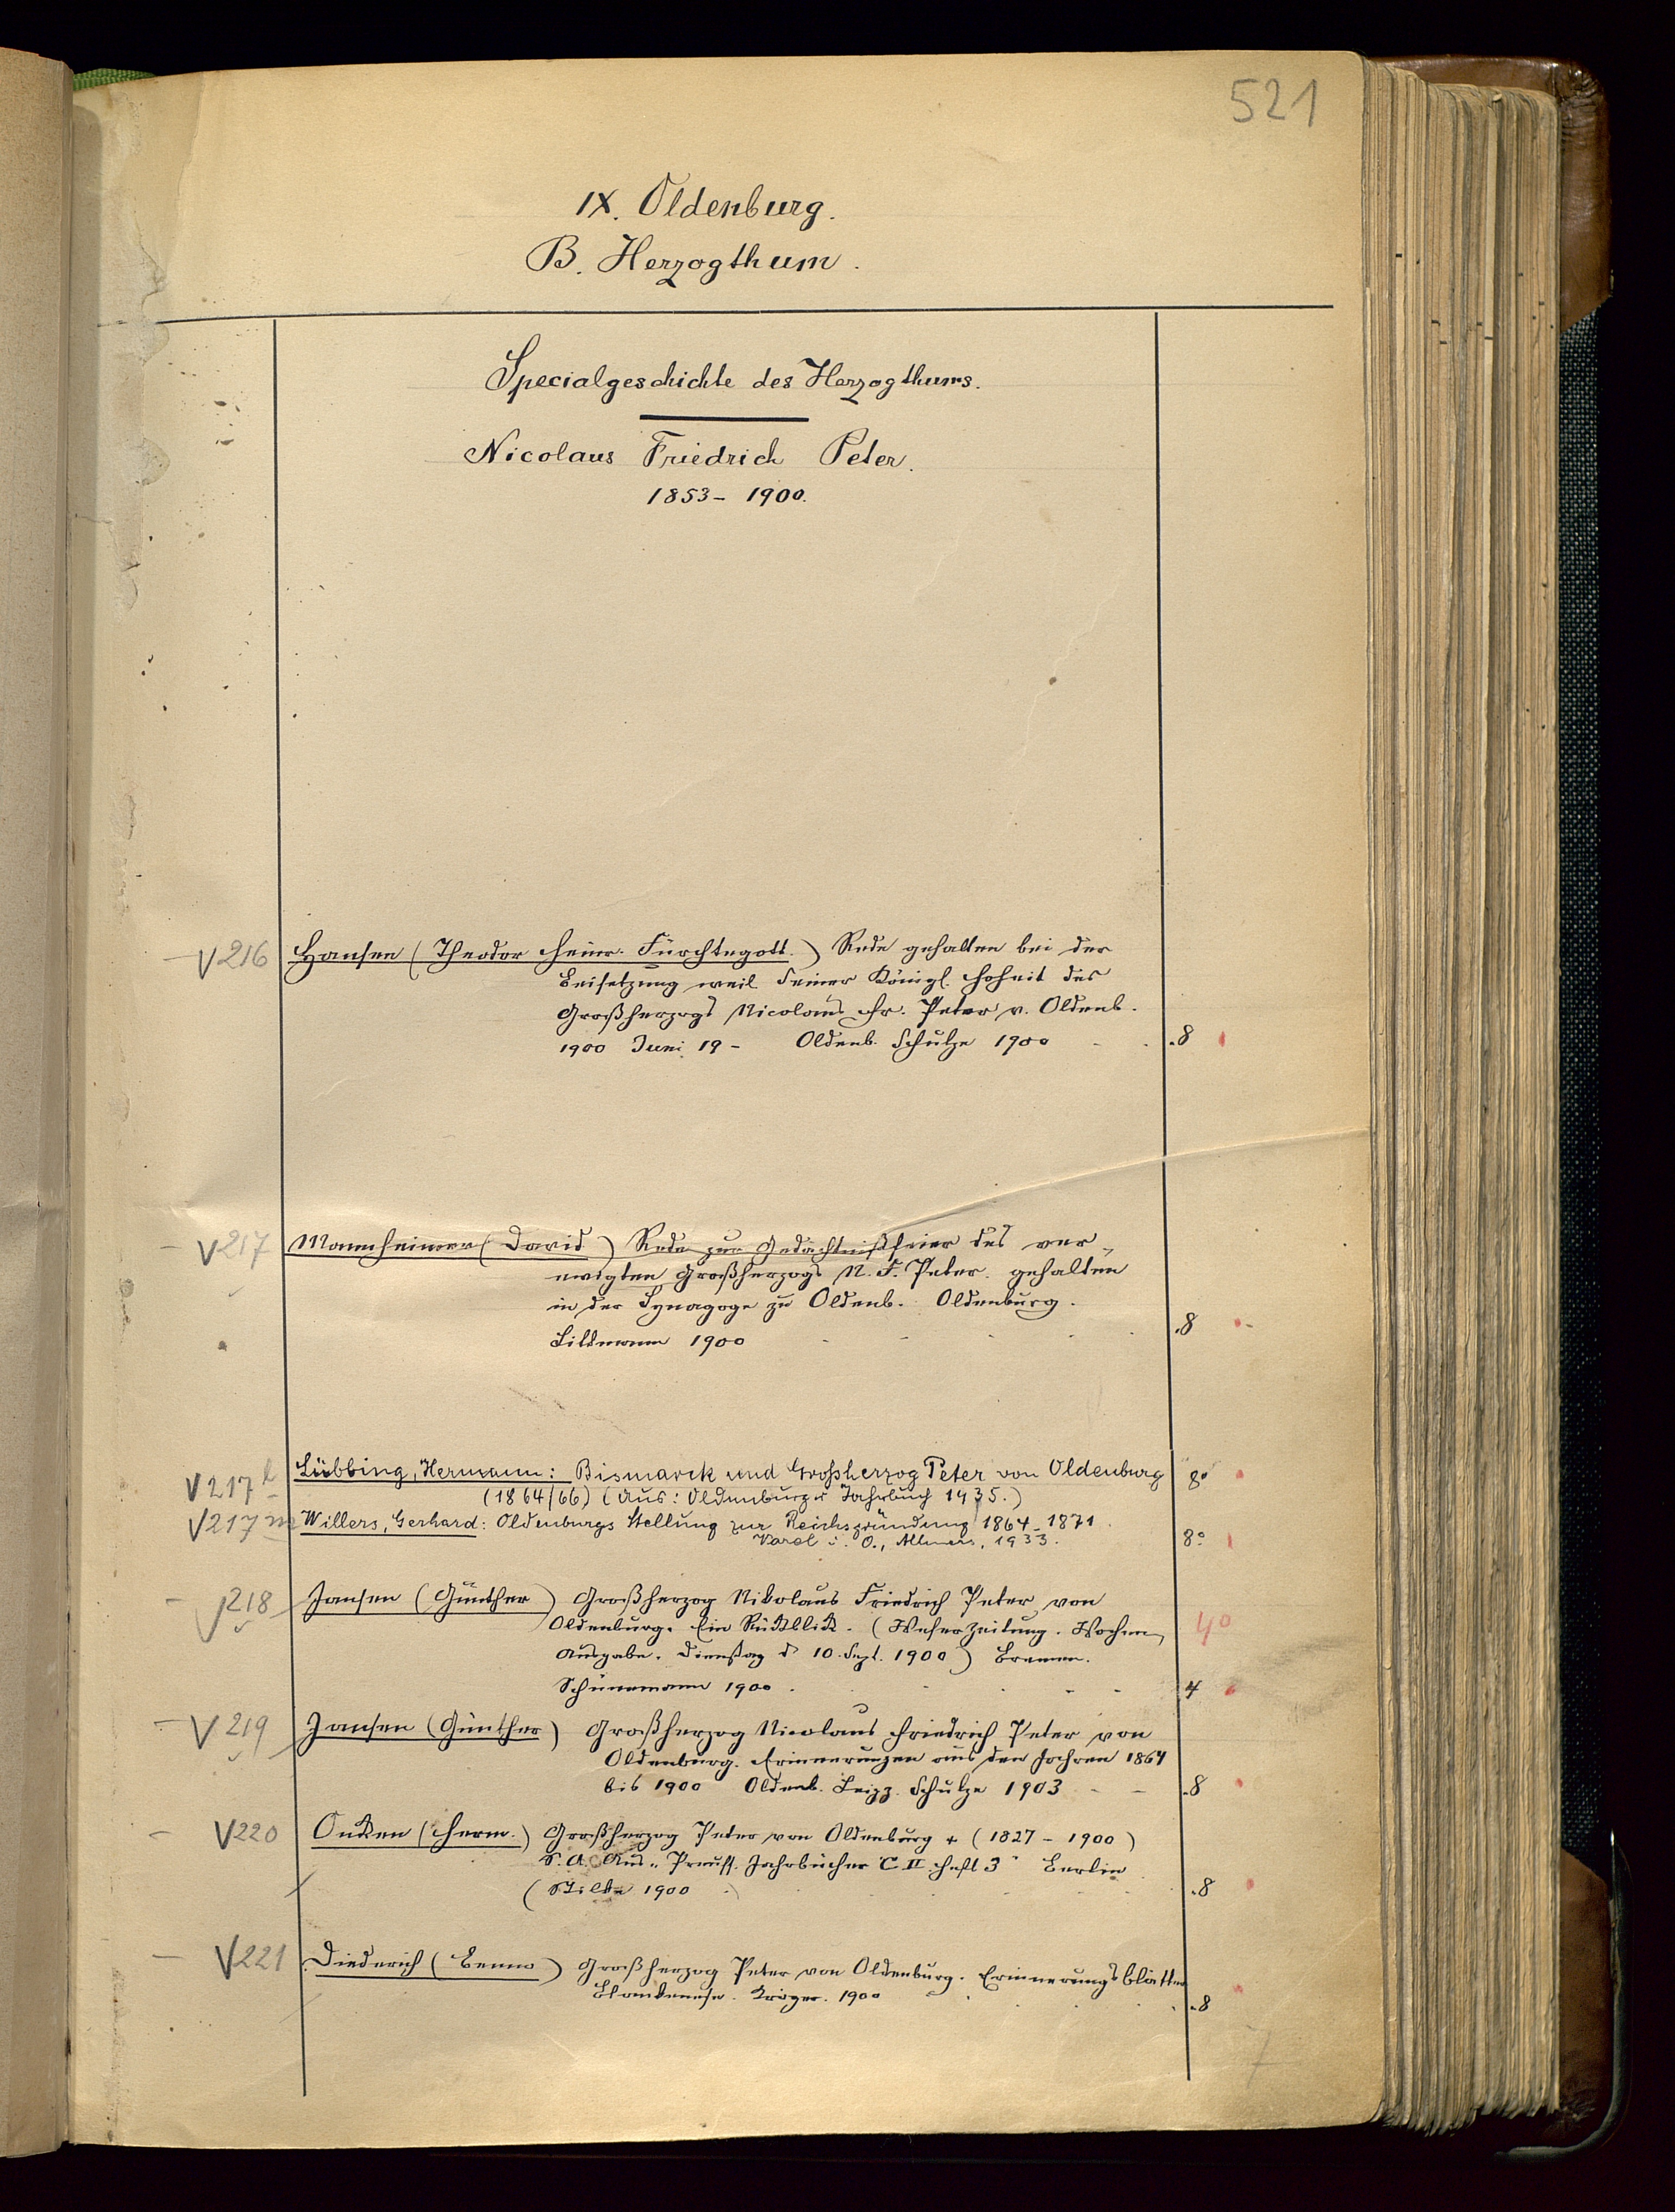 521
IX. Oldenburg.
B. Herzogthum.
Specialgeschichte des Herzogthums.
Nicolaus Friedrich Peter.
1853 - 1900.
V216 Hansen (Theodor Heinr. Fürchtegott.) Rede gehalten bei der
Beisetzung weil. Seiner Königl. Hoheit des
Großherzogs Nicolaus Fr. Peter v. Oldenb.
1900 Juni 19 - Oldenb. Schulze 1900 - - .8
V217 Mannheimer (David) Rede zur Gedächtnißfeier des ver-
ewigten Großherzogs N. F. Peter. gehalten
in der Synagoge zu Oldenb. Oldenburg.
Littmann 1900 .8
V217 l Lübbing, Hermann: Bismarck und Großherzog Peter von Oldenburg 8°
(1864/66) (Aus: Oldenburger Jahrbuch 1935.)
V217 m Willers, Gerhard: Oldenburgs Stellung zur Reichsgründung 1864-1871
Varel i. O., Allmers, 1933. 8°
V218 Jansen (Günther) Großherzog Nikolaus Friedrich Peter von
Oldenburg. Ein Rückblick. (Weserzeitung. Wochen- 4°
Ausgabe. Dienstag d 10. Sept. 1900) Bremen.
Schünemann 1900. 4
V219 Jansen (Günther) Großherzog Nicolaus Friedrich Peter von
Oldenburg. Erinnerungen aus den Jahren 1864
bis 1900 Oldenb. Leipz. Schulze 1903 - - .8
V220 Oncken (Herm.) Großherzog Peter von Oldenburg + (1827 - 1900)
S. A. Aus „Preuss. Jahrbücher C.II. Heft 3" Berlin
(Stilke 1900 .) .8
V221 Diederich (Benno) Großherzog Peter von Oldenburg. Erinnerungsblätter
Blankenese. Kröger. 1900 .8
7